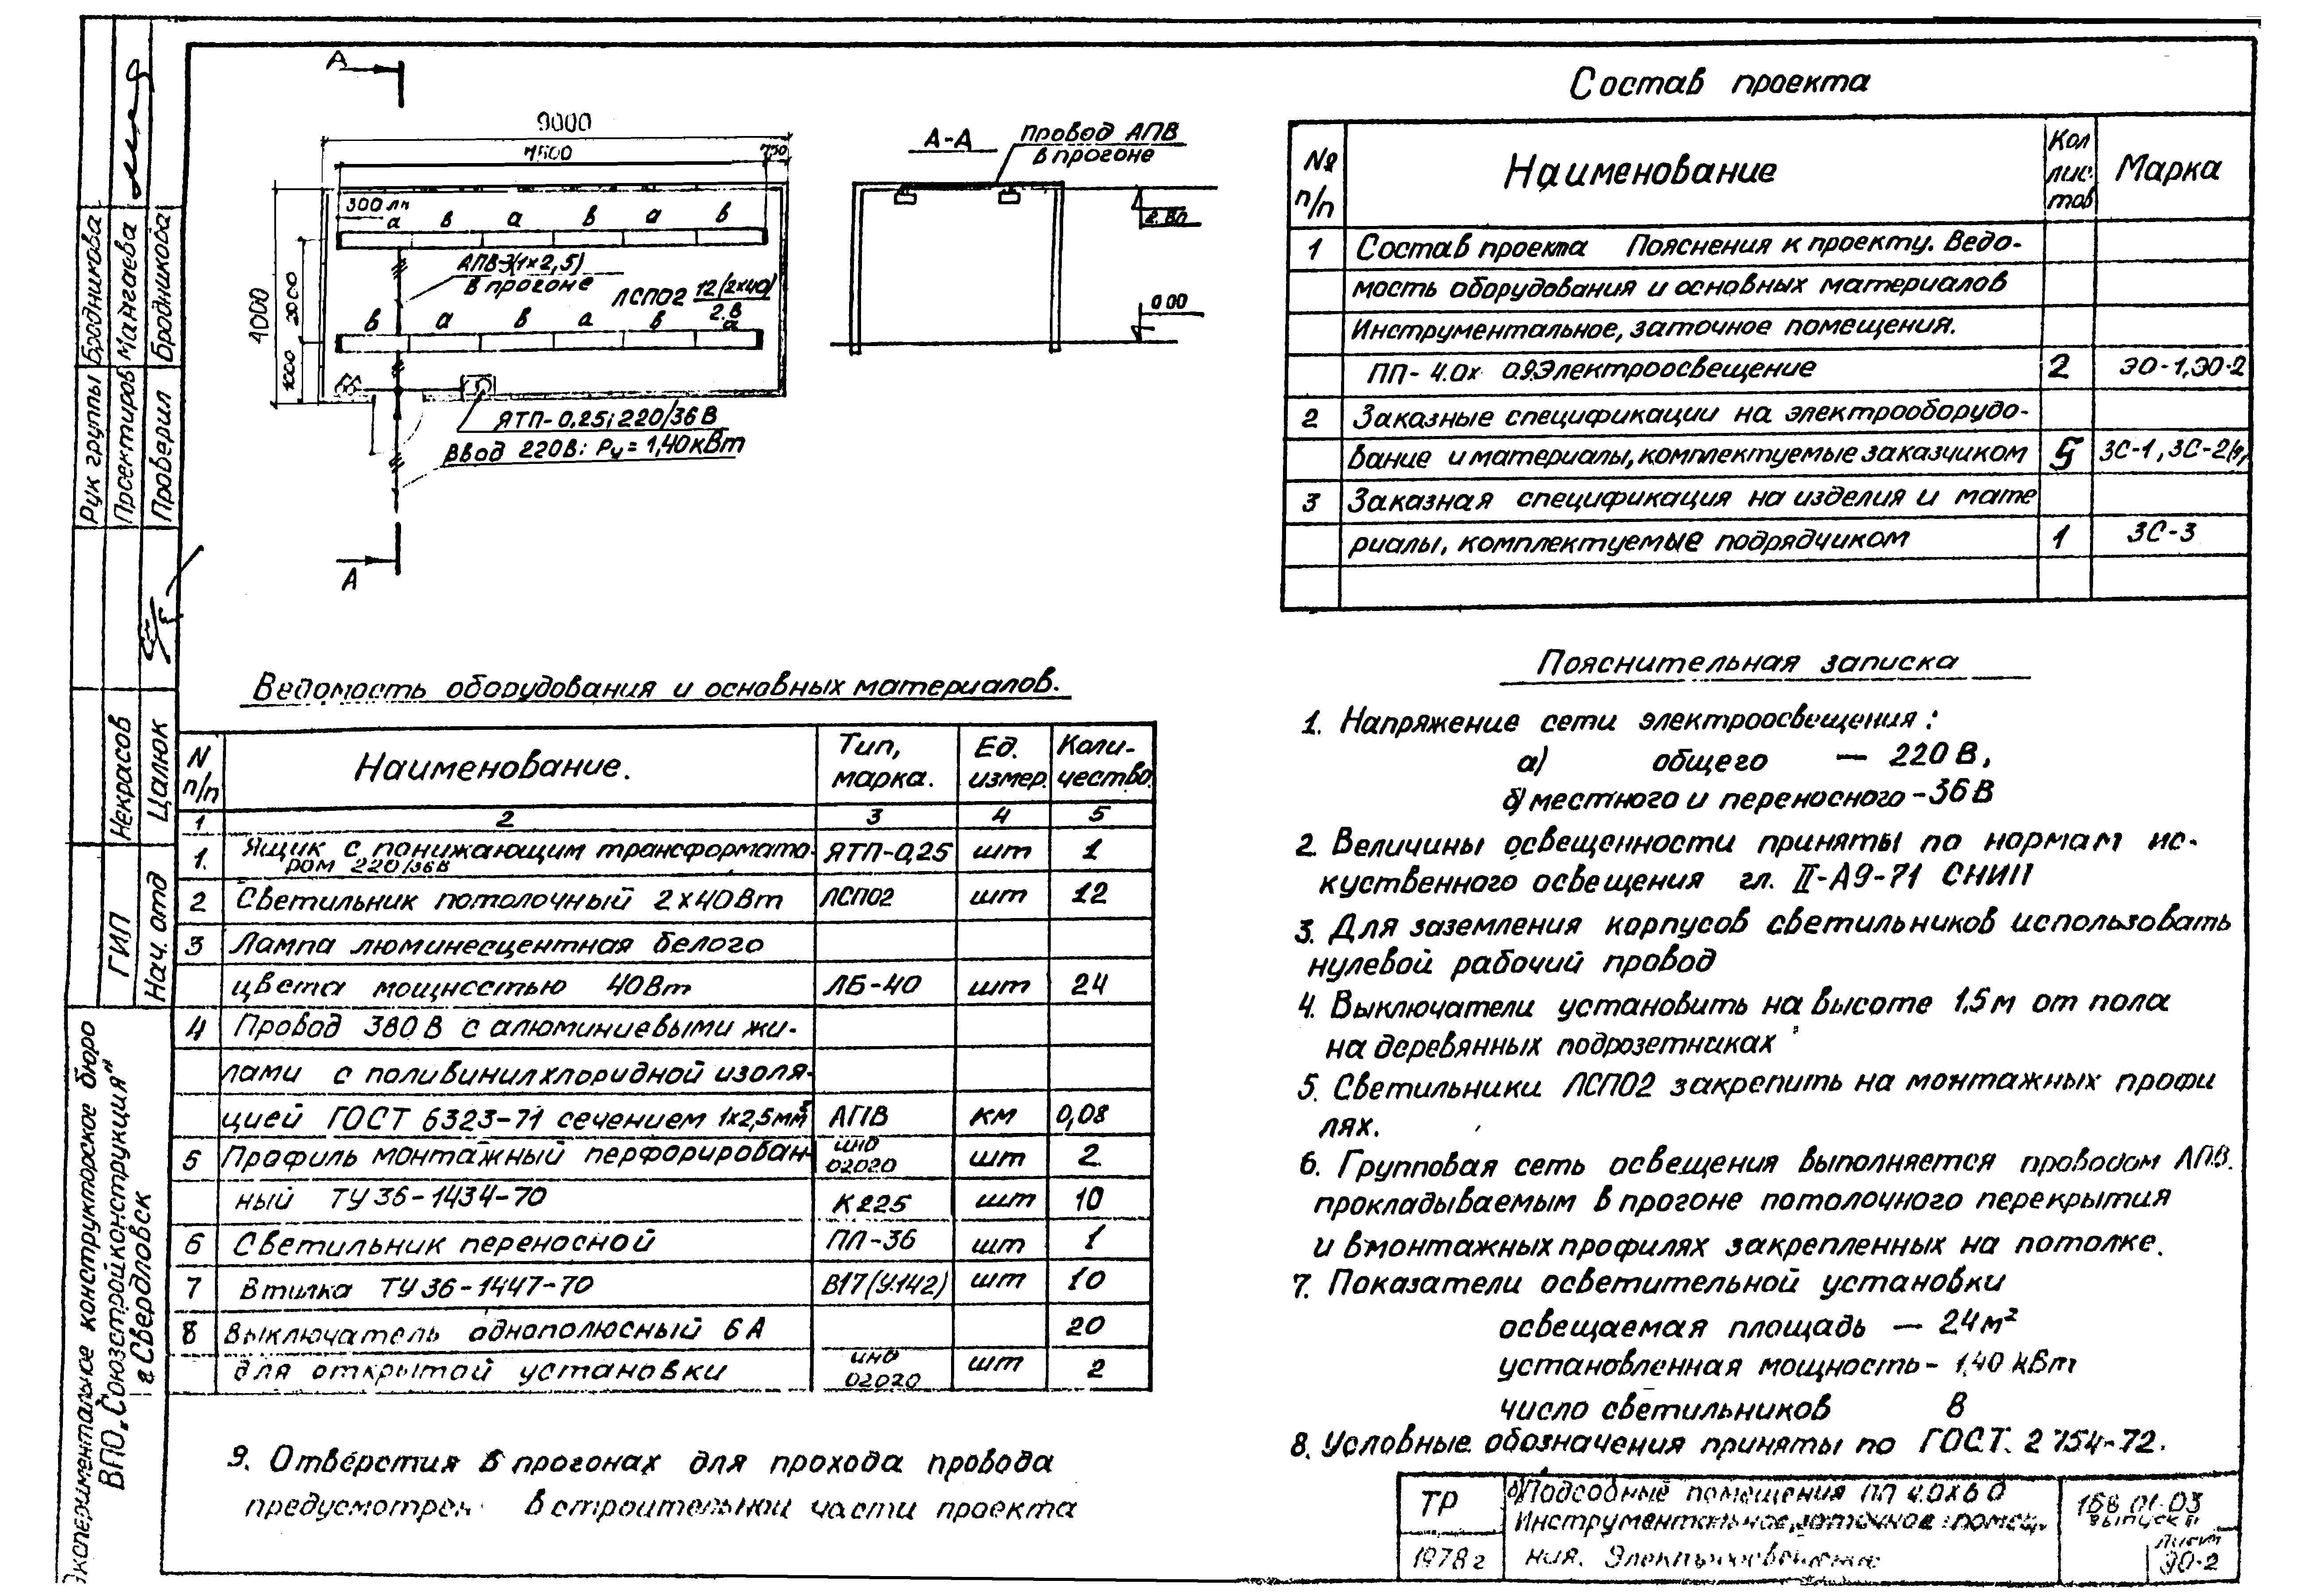 А
9000
7500
750
300 лк
а в а в а в
АПВ-3(1×2,5)
в прогоне
ЛСП02 12(2×40)
2.8
в а в а в а
4000
2000
1000
ЯТП-0,25; 220/36 В
Ввод 220В: Ру = 1,40кВт
А
А-А
Провод АПВ
в прогоне
2.80
0.00
Состав проекта
№ п/п
Наименование
Кол лис- тов
Марка
1 Состав проекта Пояснения к проекту. Ведо-
мость оборудования и основных материалов
Инструментальное, заточное помещения.
ПП- 4.0х 0.9.Электроосвещение 2 ЭО-1,ЭО-2
2 Заказные спецификации на электрооборудо-
вание и материалы, комплектуемые заказчиком 5 ЗС-1, ЗС-2
3 Заказная спецификация на изделия и мате
риалы, комплектуемые подрядчиком 1 ЗС-3
Ведомость оборудования и основных материалов.
N п/п
Наименование.
Тип, марка.
Ед. измер.
Коли- чество.
1 2 3 4 5
1. Ящик с понижающим трансформато- ЯТП-0,25 шт 1
ром 220/36В
2 Светильник потолочный 2×40Вт ЛСП02 шт 12
3 Лампа люминесцентная белого
цвета мощностью 40Вт ЛБ-40 шт 24
4 Провод 380 В с алюминиевыми жи-
лами с поливинилхлоридной изоля-
цией ГОСТ 6323-71 сечением 1×2,5мм² АПВ км 0,08
5 Профиль монтажный перфорирован- инд 02020 шт 2
ный ТУ 36-1434-70 К225 шт 10
6 Светильник переносной ПЛ-36 шт 1
7 Втилка ТУ 36-1447-70 В17(У142) шт 10
8 Выключатель однополюсный 6А 20
для открытой установки инд 02020 шт 2
Пояснительная записка
1. Напряжение сети электроосвещения:
а) общего — 220 В,
б) местного и переносного - 36 В
2. Величины освещенности приняты по нормам ис-
куственного освещения гл. II-А9-71 СНИП
3. Для заземления корпусов светильников использовать
нулевой рабочий провод
4. Выключатели установить на высоте 1,5м от пола
на деревянных подрозетниках
5. Светильники ЛСП02 закрепить на монтажных профи
лях.
6. Групповая сеть освещения выполняется проводом АПВ.
прокладываемым в прогоне потолочного перекрытия
и в монтажных профилях закрепленных на потолке.
7. Показатели осветительной установки
освещаемая площадь — 24 м²
установленная мощность - 1,40 кВт
число светильников 8
8. Условные обозначения приняты по ГОСТ. 2 754-72.
9. Отверстия в прогонах для прохода провода
предусмотрен в строительной части проекта
ТР
1978 г
Подсобные помещения ПП 4.0×6 0
Инструментальное, заточное помещ.
ния. Электроосвещение
168 01-03
выпуск II
Лист
ЭО-2
Рук группы Бродникова
Проектиров Мангаева
Проверил Бродникова
ГИП Некрасов
Нач. отд Цалюк
Экспериментальное конструкторское бюро
ВПО „Союзстройконструкция"
г Свердловск